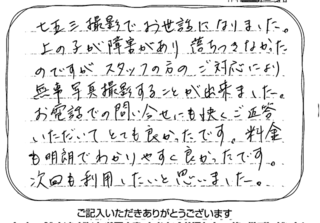 七五三撮影でお世話になりました。
上の子が障害があり落ちつきなかった
のですが スタッフの方のご対応により
無事写真撮影することが出来ました。
お電話での問い合せにも快くご返答
いただいてとても良かったです。料金
も明朗でわかりやすく良かったです。
次回も利用したいと思いました。
ご記入いただきありがとうございます